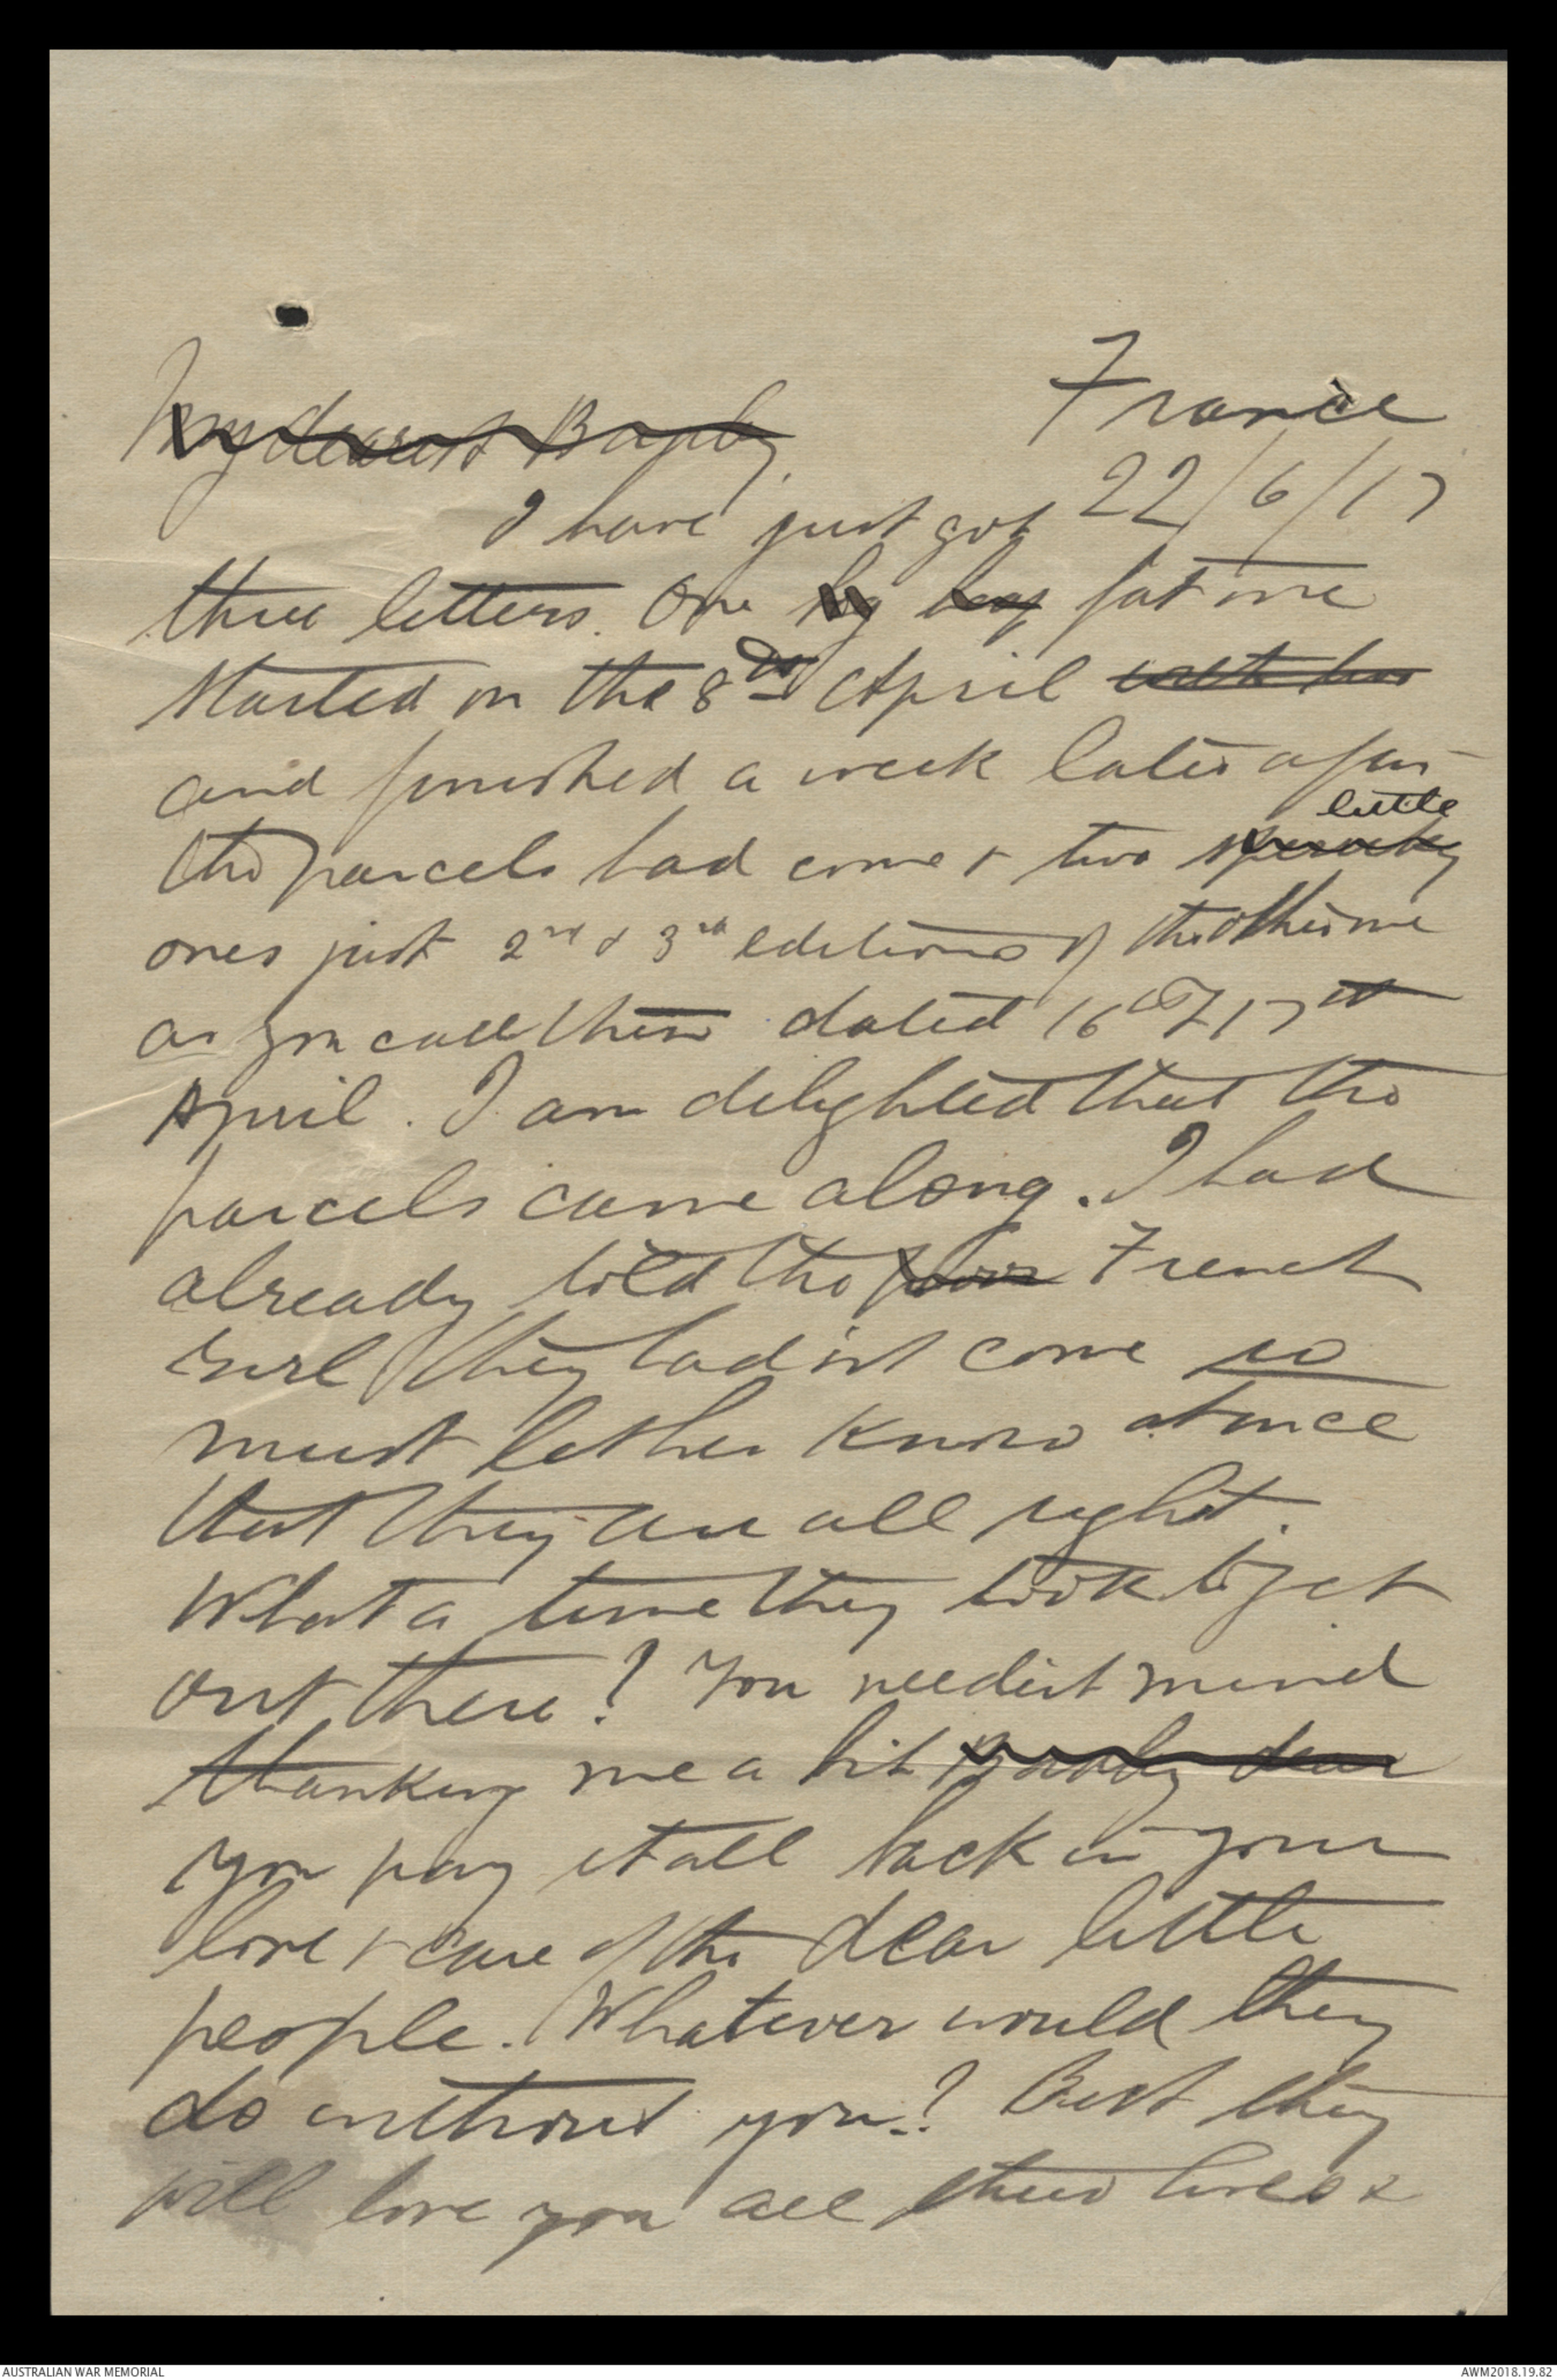 France
My dearest Barbly.
22/6/17
I have just got
three letters. One big long fat one
started on the 8th April with has
and finished a week later after
little
the parcels had come & two
ones just 2nd & 3rd editions of the other one
as you call them dated 16th & 17th
April. I am delighted that the
parcels came along. I had
already told the poor French
girl they hadn't come so
must let her know at once
that they are all right.
What a time they took to get
out there! You needn't mind
thanking me a bit Barbly dear
you pay it all back in your
love & care of the dear little
people. Whatever would they
do without you? But they
will love you all their lives &
AUSTRALIAN WAR MEMORIAL
AWM2018.19.82